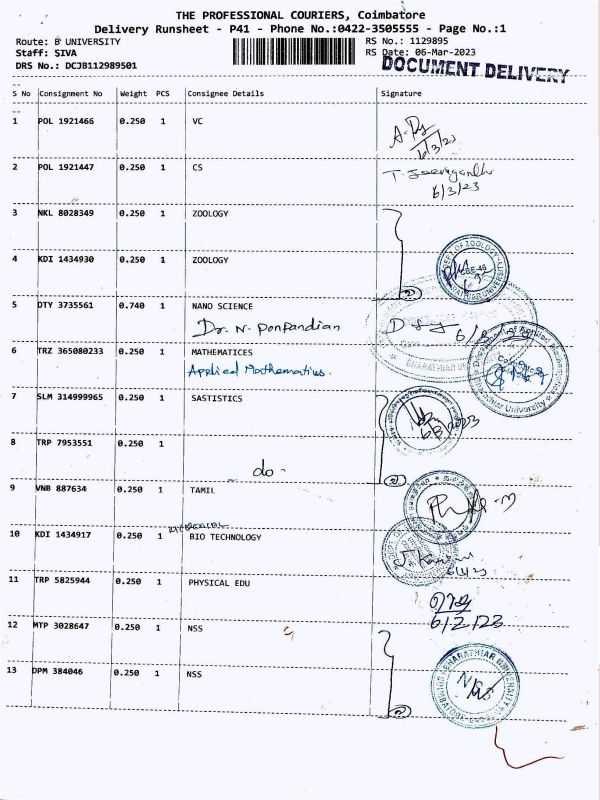 THE PROFESSIONAL COURIERS, Coimbatore
Delivery Runsheet - P41 - Phone No.:0422-3505555 - Page No.:1
Route: B UNIVERSITY RS No.: 1129895
Staff: SIVA RS Date: 06-Mar-2023
DRS No.: DCJB112989501 DOCUMENT DELIVERY
S No Consignment No Weight PCS Consignee Details Signature
1 POL 1921466 0.250 1 VC
6/3/23
2 POL 1921447 0.250 1 CS
6/3/23
3 NKL 8028349 0.250 1 ZOOLOGY
4 KDI 1434930 0.250 1 ZOOLOGY
5 DTY 3735561 0.740 1 NANO SCIENCE
Dr. N. Ponpandian
6 TRZ 365080233 0.250 1 MATHEMATICES
Applied Mathematics.
7 SLM 314999965 0.250 1 SASTISTICS
8 TRP 7953551 0.250 1
do -
9 VNB 887634 0.250 1 TAMIL
10 KDI 1434917 0.250 1 BIO TECHNOLOGY
11 TRP 5825944 0.250 1 PHYSICAL EDU
6/2/23
12 MTP 3028647 0.250 1 NSS
13 DPM 384046 0.250 1 NSS